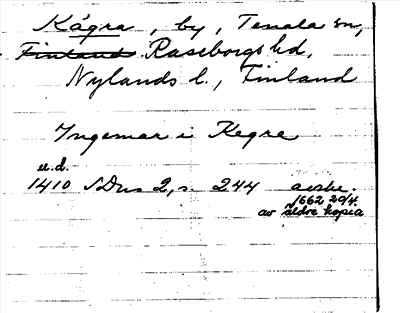 Kägra, by, Tenala sn,
Finland Raseborgs hd,
Nylands l., Finland
Ingemar i Kegre
u.d.
1410 SDns 2, s. 244 avskr.
1662 29/4.
av äldre kopia